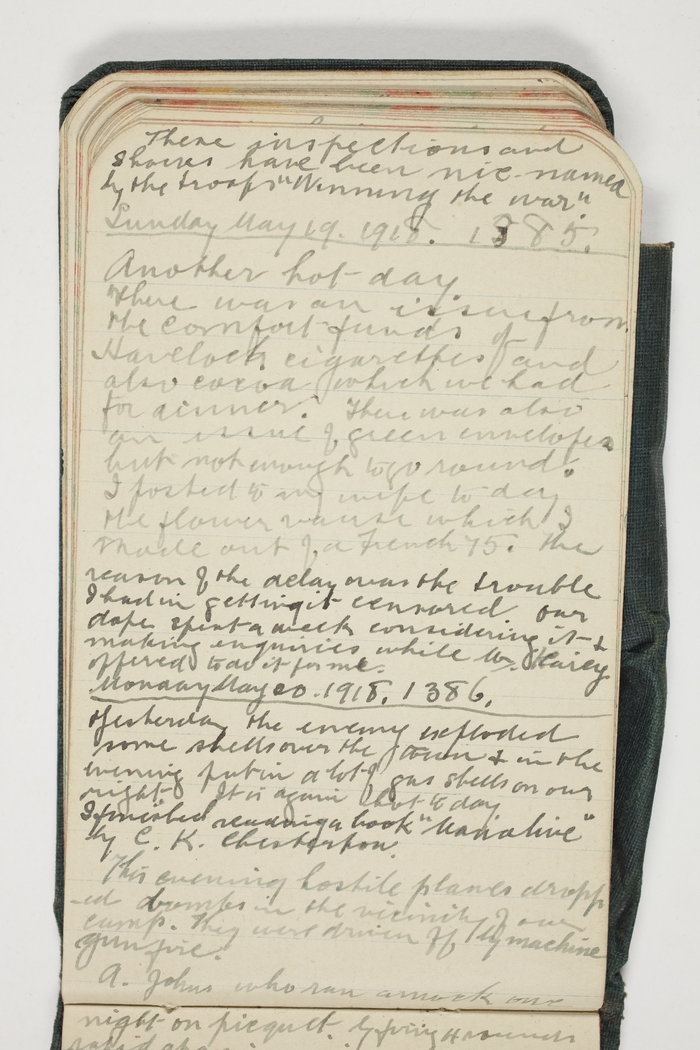 These inspections and
shaves have been nic-named
by the troops "Winning the war".
Sunday May 19. 1918. 1385.
Another hot day
There was an issue from
the comfort funds of
Havelock cigarettes and
also cocoa which we had
for dinner. There was also
an issue of green envelopes
but not enough to go round.
I posted to my wife to day
the flower vause which I
made out of a French 75. The
reason of the delay was the trouble
I had in getting it censored our
spent a week considering it &
making enquiries while Mr.
offered to do it for me.
Monday May 20. 1918. 1386.
Yesterday the enemy exploded
some shells over the town & in the
evening put in a lot of gas shells on our
right. It is again hot to day
I finished reading a book "Manalive"
by C. K. Chesterton.
This evening hostile planes dropp
-ed bombs in the vicinity of our
camp. They were driven off by machine
gun fire.
A. Johns who ran amock one
night on picquet. by firing 4 rounds